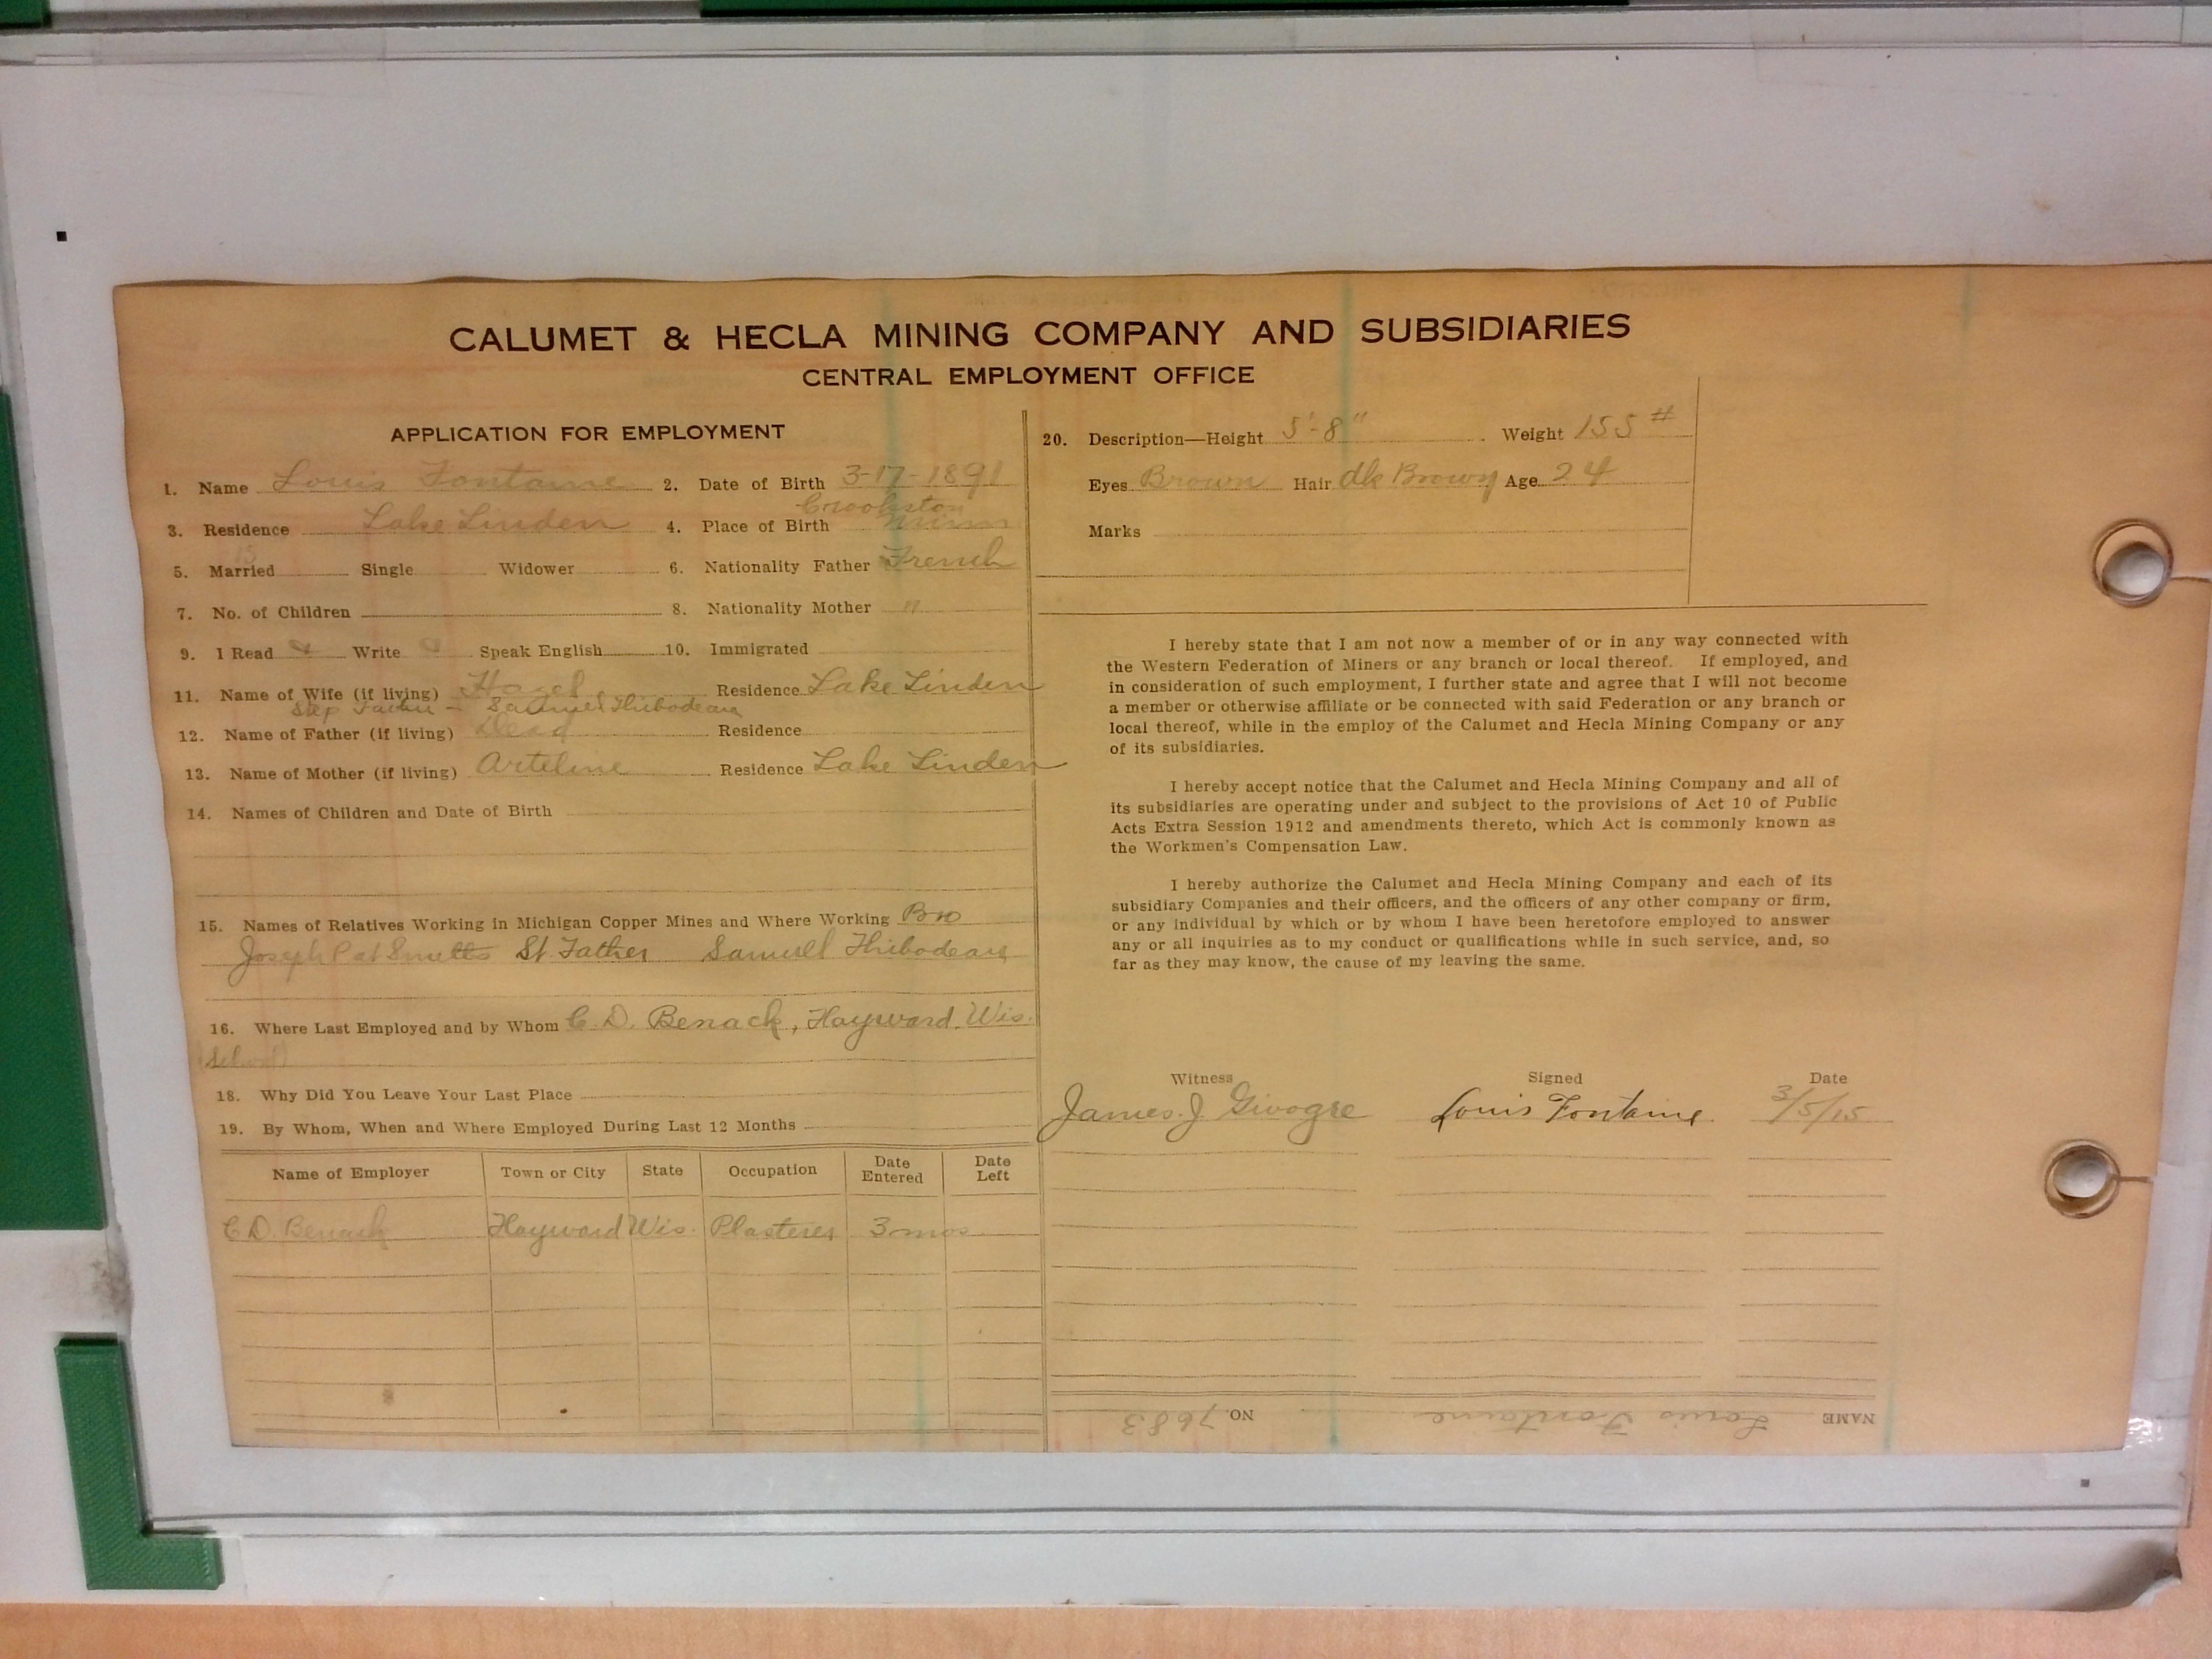 CALUMET & HECLA MINING COMPANY AND SUBSIDIARIES
CENTRAL EMPLOYMENT OFFICE
APPLICATION FOR EMPLOYMENT
1. Name Louis Fontaine 2. Date of Birth 3-17-1891
Crookston
3. Residence Lake Linden 4. Place of Birth Minn
5. Married Single Widower 6. Nationality Father French
7. No. of Children 8. Nationality Mother "
9. I Read Write Speak English 10. Immigrated
11. Name of Wife (if living) Hazel Residence Lake Linden
Step Father - Samuel Thibodeau
12. Name of Father (if living) Dead Residence
13. Name of Mother (if living) Arteline Residence Lake Linden
14. Names of Children and Date of Birth
15. Names of Relatives Working in Michigan Copper Mines and Where Working Bro
Joseph at St. Father Samuel Thibodeau
16. Where Last Employed and by Whom C. D. Benack, Hayward, Wis.
18. Why Did You Leave Your Last Place
19. By Whom, When and Where Employed During Last 12 Months
Name of Employer Town or City State Occupation Date Entered Date Left
C D. Benack Hayward Wis. Plasterer 3 mos
20. Description—Height 5'-8" Weight 155 #
Eyes Brown Hair dk Brown Age 24
Marks
I hereby state that I am not now a member of or in any way connected with
the Western Federation of Miners or any branch or local thereof. If employed, and
in consideration of such employment, I further state and agree that I will not become
a member or otherwise affiliate or be connected with said Federation or any branch or
local thereof, while in the employ of the Calumet and Hecla Mining Company or any
of its subsidiaries.
I hereby accept notice that the Calumet and Hecla Mining Company and all of
its subsidiaries are operating under and subject to the provisions of Act 10 of Public
Acts Extra Session 1912 and amendments thereto, which Act is commonly known as
the Workmen's Compensation Law.
I hereby authorize the Calumet and Hecla Mining Company and each of its
subsidiary Companies and their officers, and the officers of any other company or firm,
or any individual by which or by whom I have been heretofore employed to answer
any or all inquiries as to my conduct or qualifications while in such service, and, so
far as they may know, the cause of my leaving the same.
Witness Signed Date
James. J. Louis Fontaine 3/5/15
NAME Louis Fontaine NO. 7683